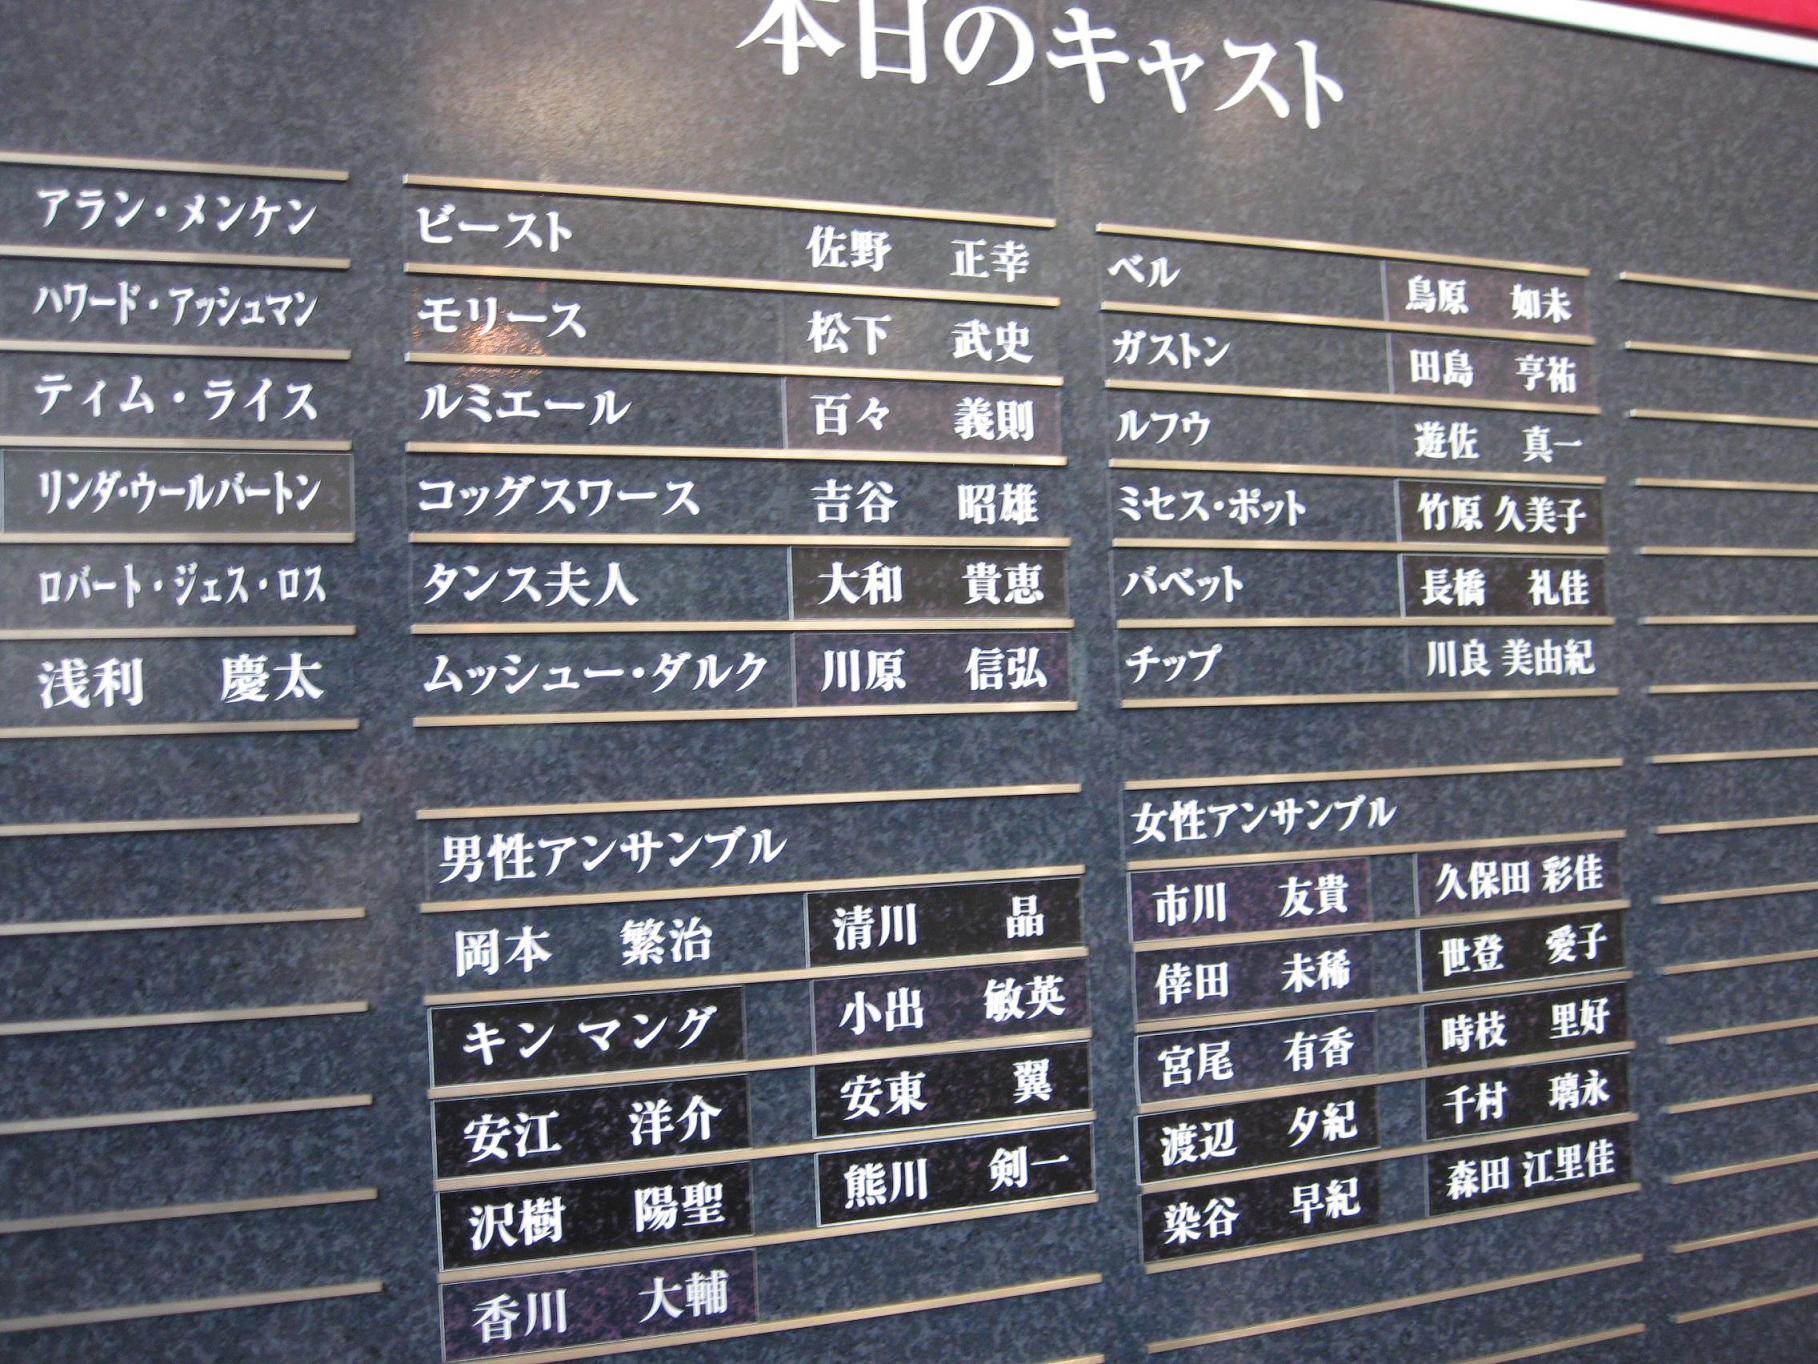 本日のキャスト
アラン・メンケン
ハワード・アッシュマン
ティム・ライス
リンダ・ウールバートン
ロバート・ジェス・ロス
浅利 慶太
ビースト 佐野 正幸
モリース 松下 武史
ルミエール 百々 義則
コッグスワース 吉谷 昭雄
タンス夫人 大和 貴恵
ムッシュー・ダルク 川原 信弘
ベル 鳥原 如未
ガストン 田島 亨祐
ルフウ 遊佐 真一
ミセス・ポット 竹原 久美子
バベット 長橋 礼佳
チップ 川良 美由紀
男性アンサンブル
岡本 繁治 清川 晶
キン マング 小出 敏英
安江 洋介 安東 翼
沢樹 陽聖 熊川 剣一
香川 大輔
女性アンサンブル
市川 友貴 久保田 彩佳
倖田 未稀 世登 愛子
宮尾 有香 時枝 里好
渡辺 夕紀 千村 璃永
染谷 早紀 森田 江里佳